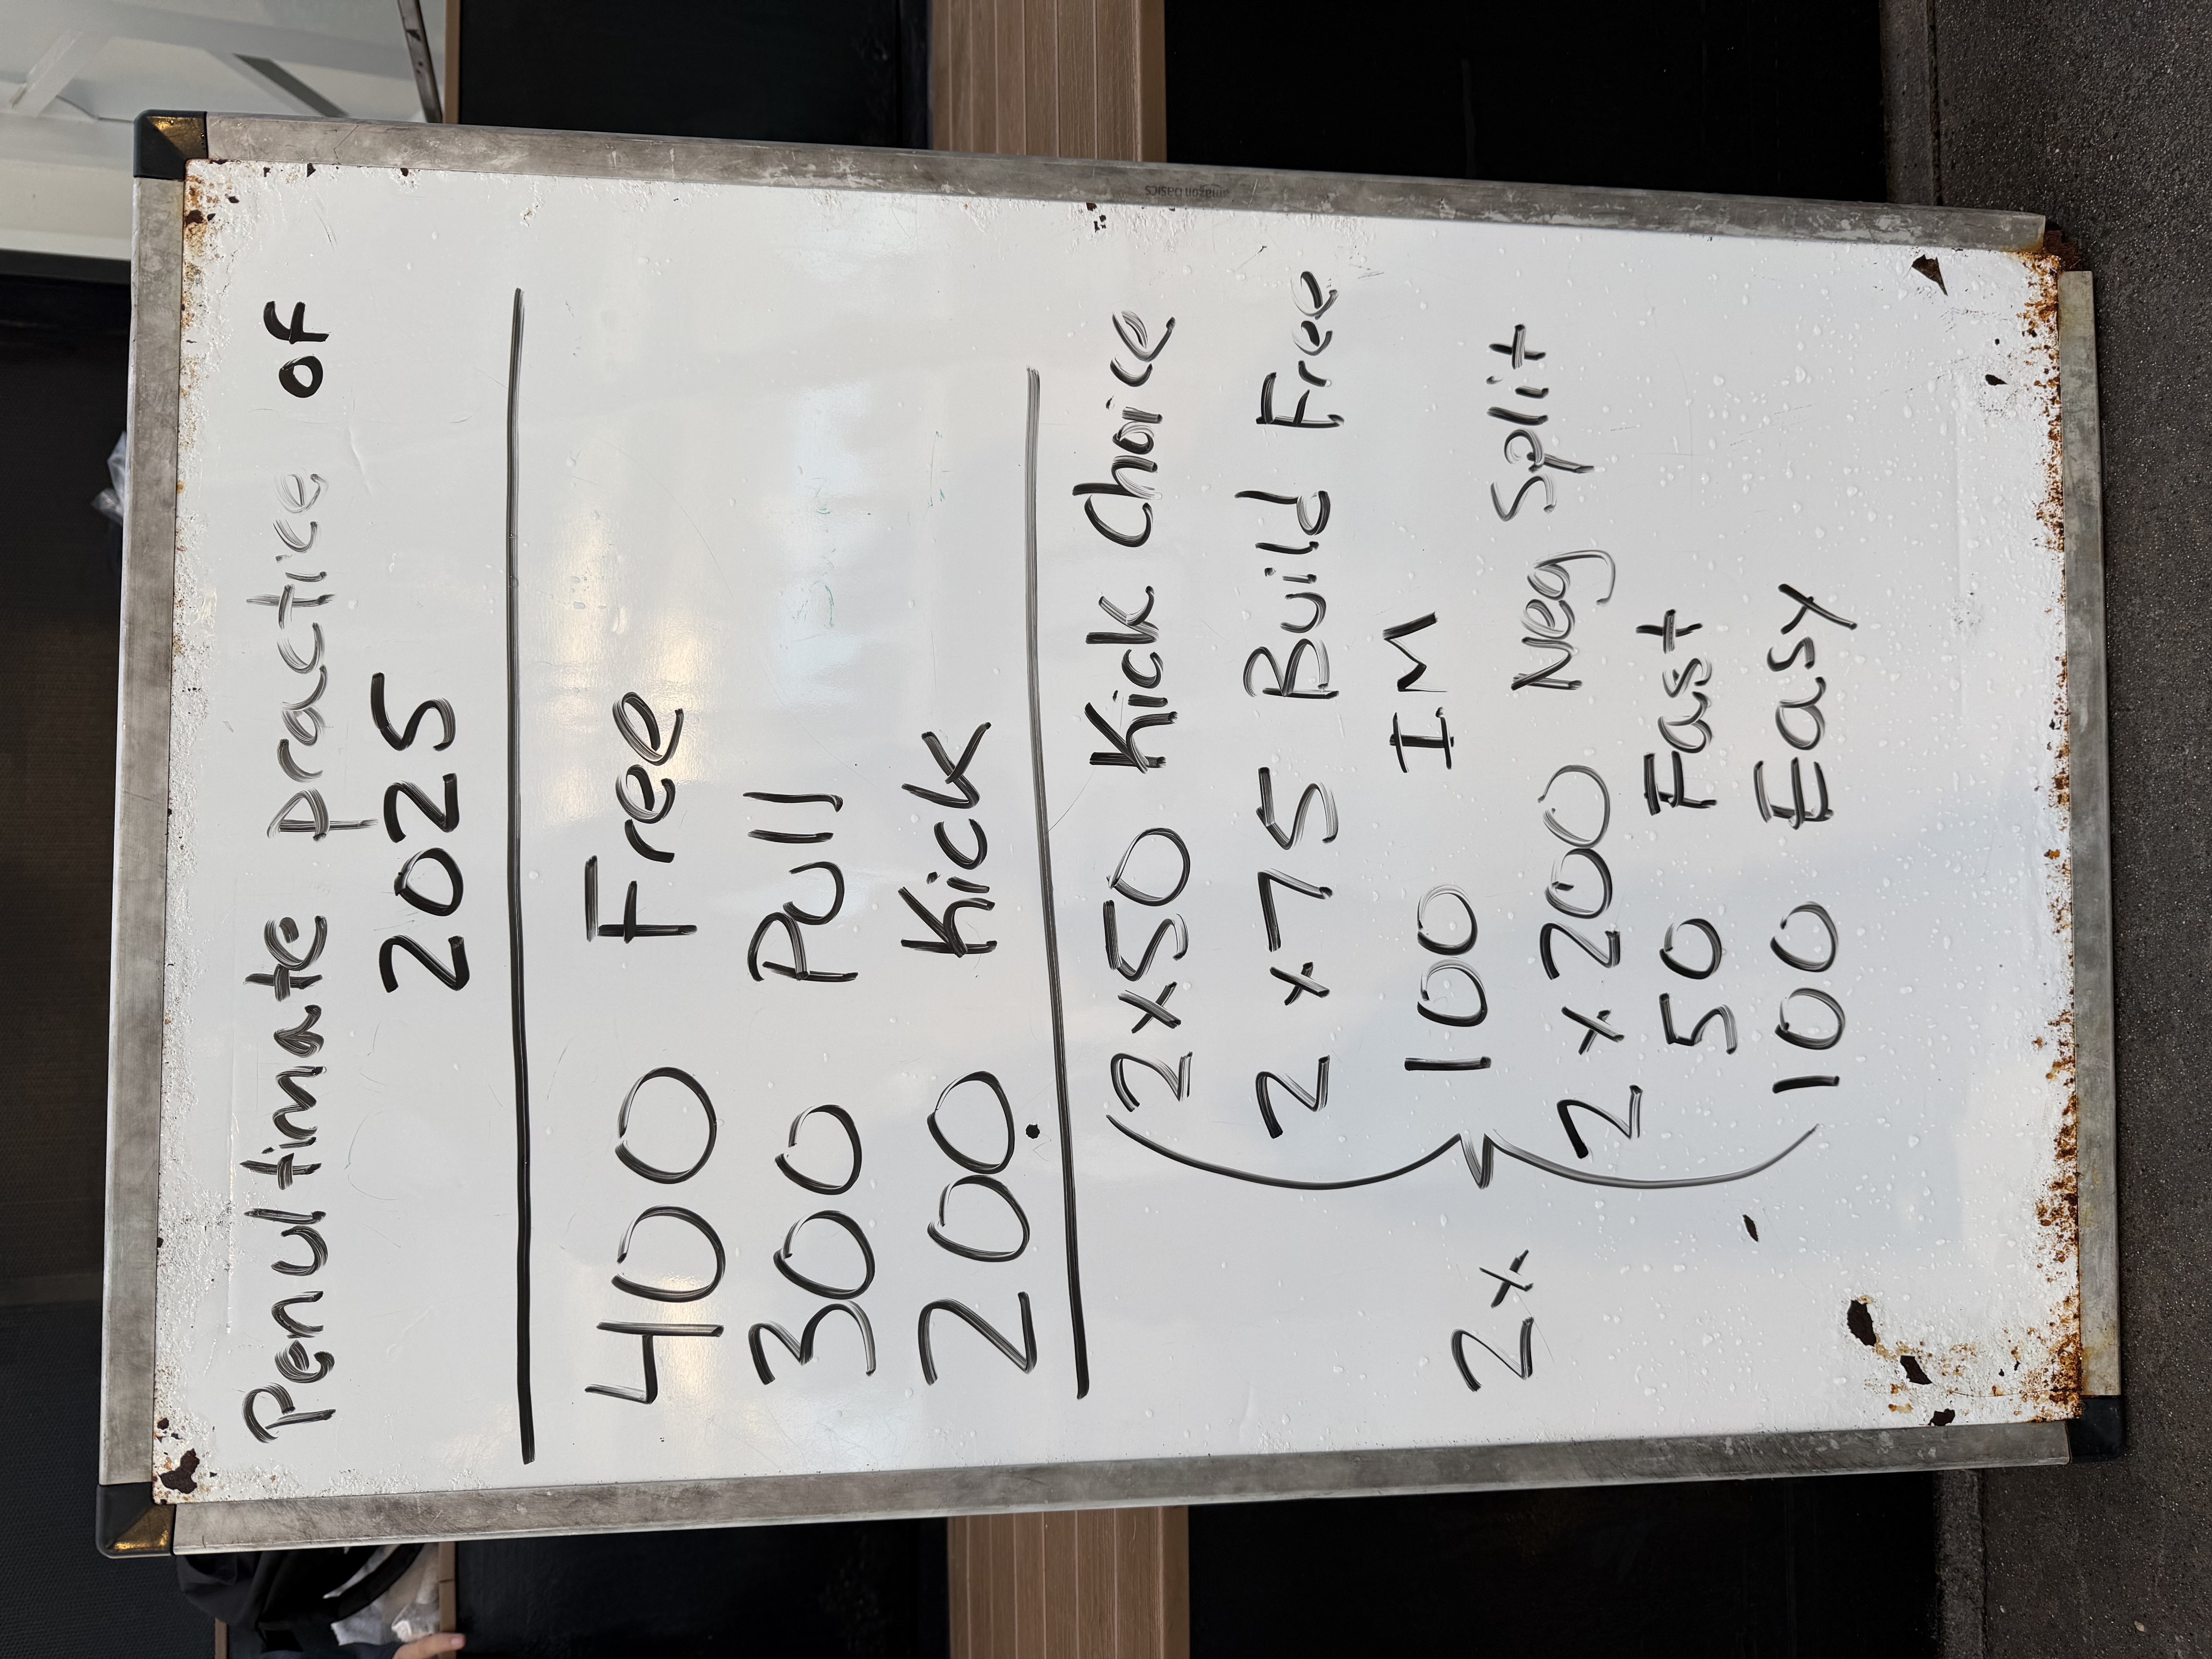 Penultimate practice of
2025
400 Free
300 Pull
200 Kick
2x50 Kick Choice
2x75 Build Free
100 IM
2x
2x200 Neg Split
50 Fast
100 Easy
amazon basics